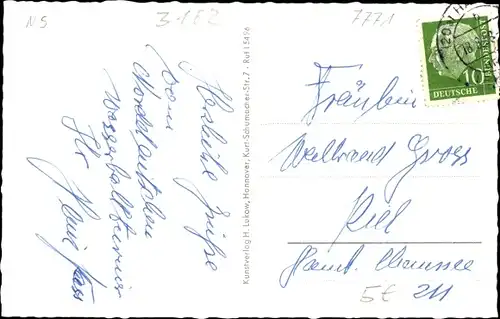 NS
3182
7771
Herzliche Grüße
vom
Norddeutschen
Wasserballturnier
Ihr
Kunstverlag H. Lukow, Hannover, Kurt-Schumacher-Str. 7 - Ruf 1 34 96
10
DEUTSCHE
BUNDESPOST
(20a) HA
Fräulein
Waltraud Gross
Kiel
Hamb. Chaussee
211
5€